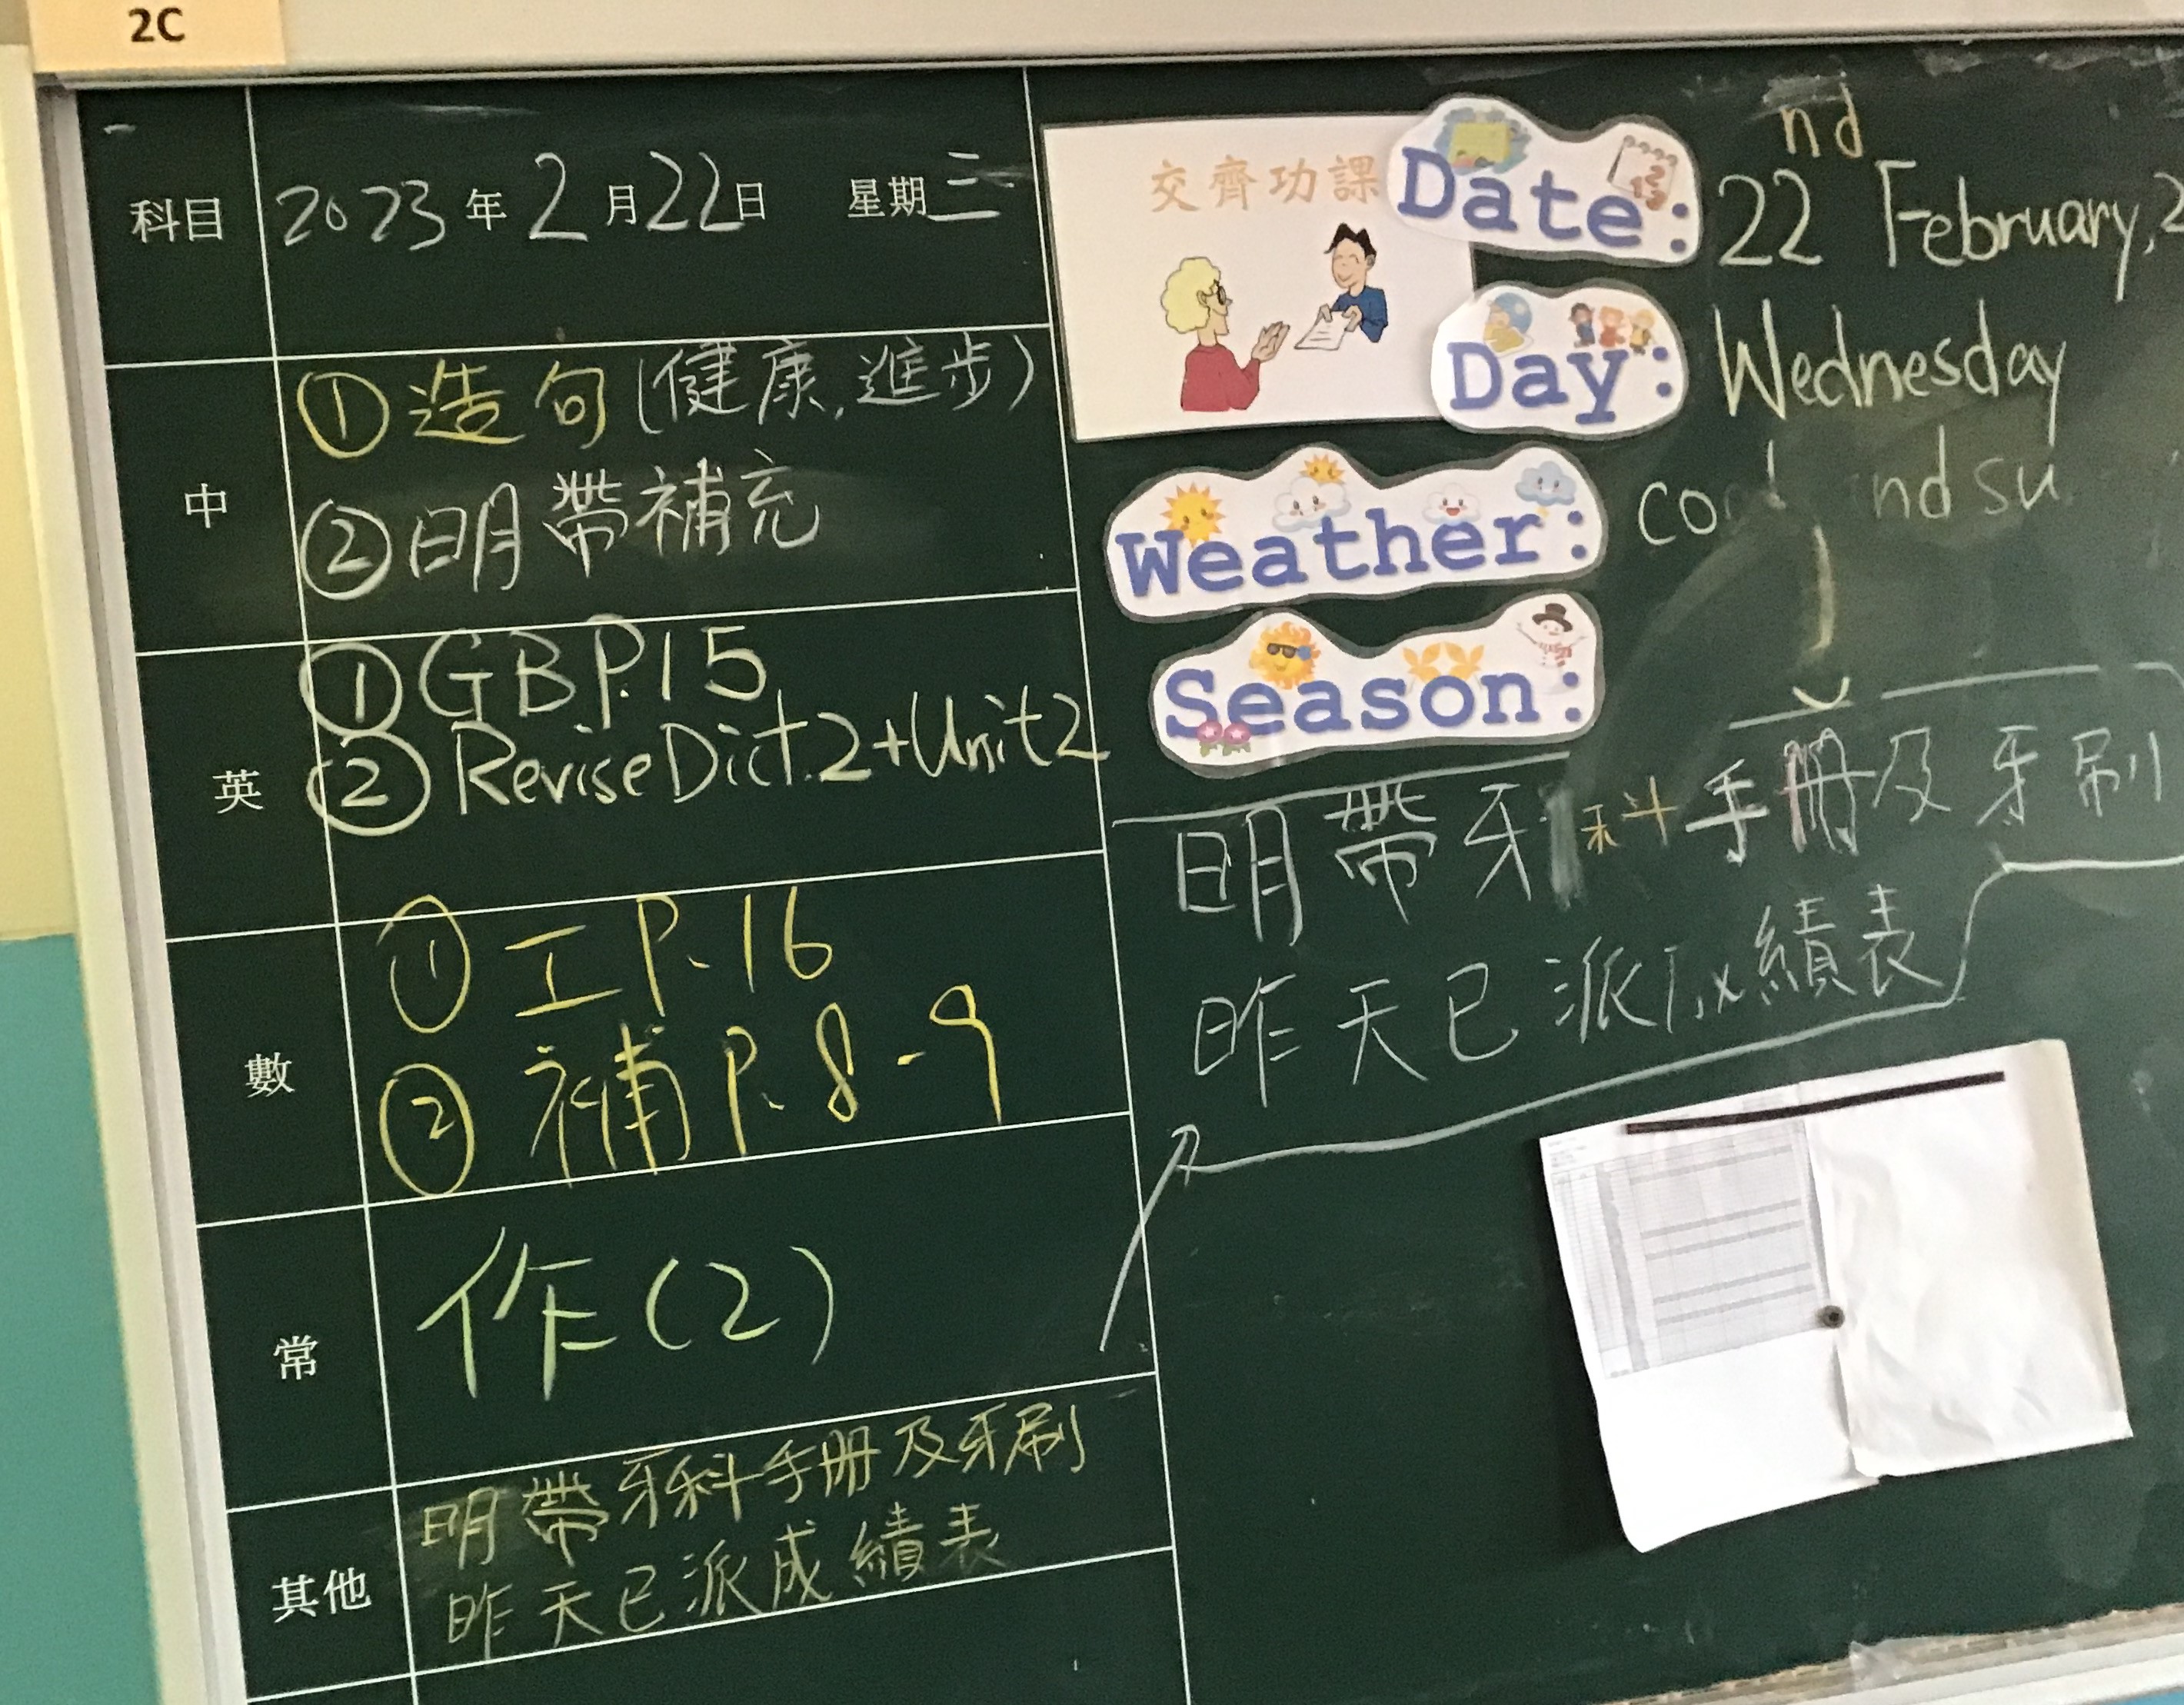 2C
科目 2023年2月22日 星期三
中 ①造句(健康,進步)
②明帶補充
英 ①GB P.15
②Revise Dict.2+Unit2
數 ①工P.16
②補P.8-9
常 作(2)
其他 明帶牙科手冊及牙刷
昨天已派成績表
交齊功課
Date: 22nd February,
Day: Wednesday
Weather:
Season:
明帶牙科手冊及牙刷
昨天已派績表